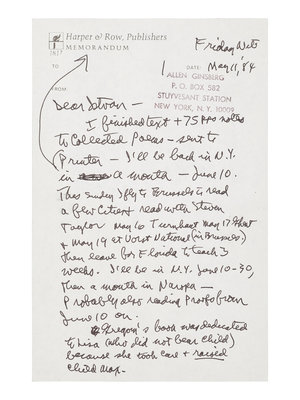 Harper & Row, Publishers
1817 MEMORANDUM
Friday Nite
TO
DATE: May 11, '84
FROM
ALLEN GINSBERG
P. O. BOX 582
STUYVESANT STATION
NEW YORK, N. Y. 10009
Dear Istvan —
I finished text + 75 pps notes
to Collected Poems — sent to
Printer — I'll be back in N.Y.
in a month — June 10.
This Sunday I fly to Brussels to read
a few Cities & read with Steven
Taylor May 16 Turnhout May 17 Ghent
& May 19 at Vorst National (in Brussels)
then leave for Florida to teach 3
weeks. I'll be in N.Y. June 10-30,
then a month in Naropa —
Probably also reading Proofs from
June 10 on.
Gregory's book was dedicated
to Lisa (who did not bear child)
because she took care & raised
child Max.